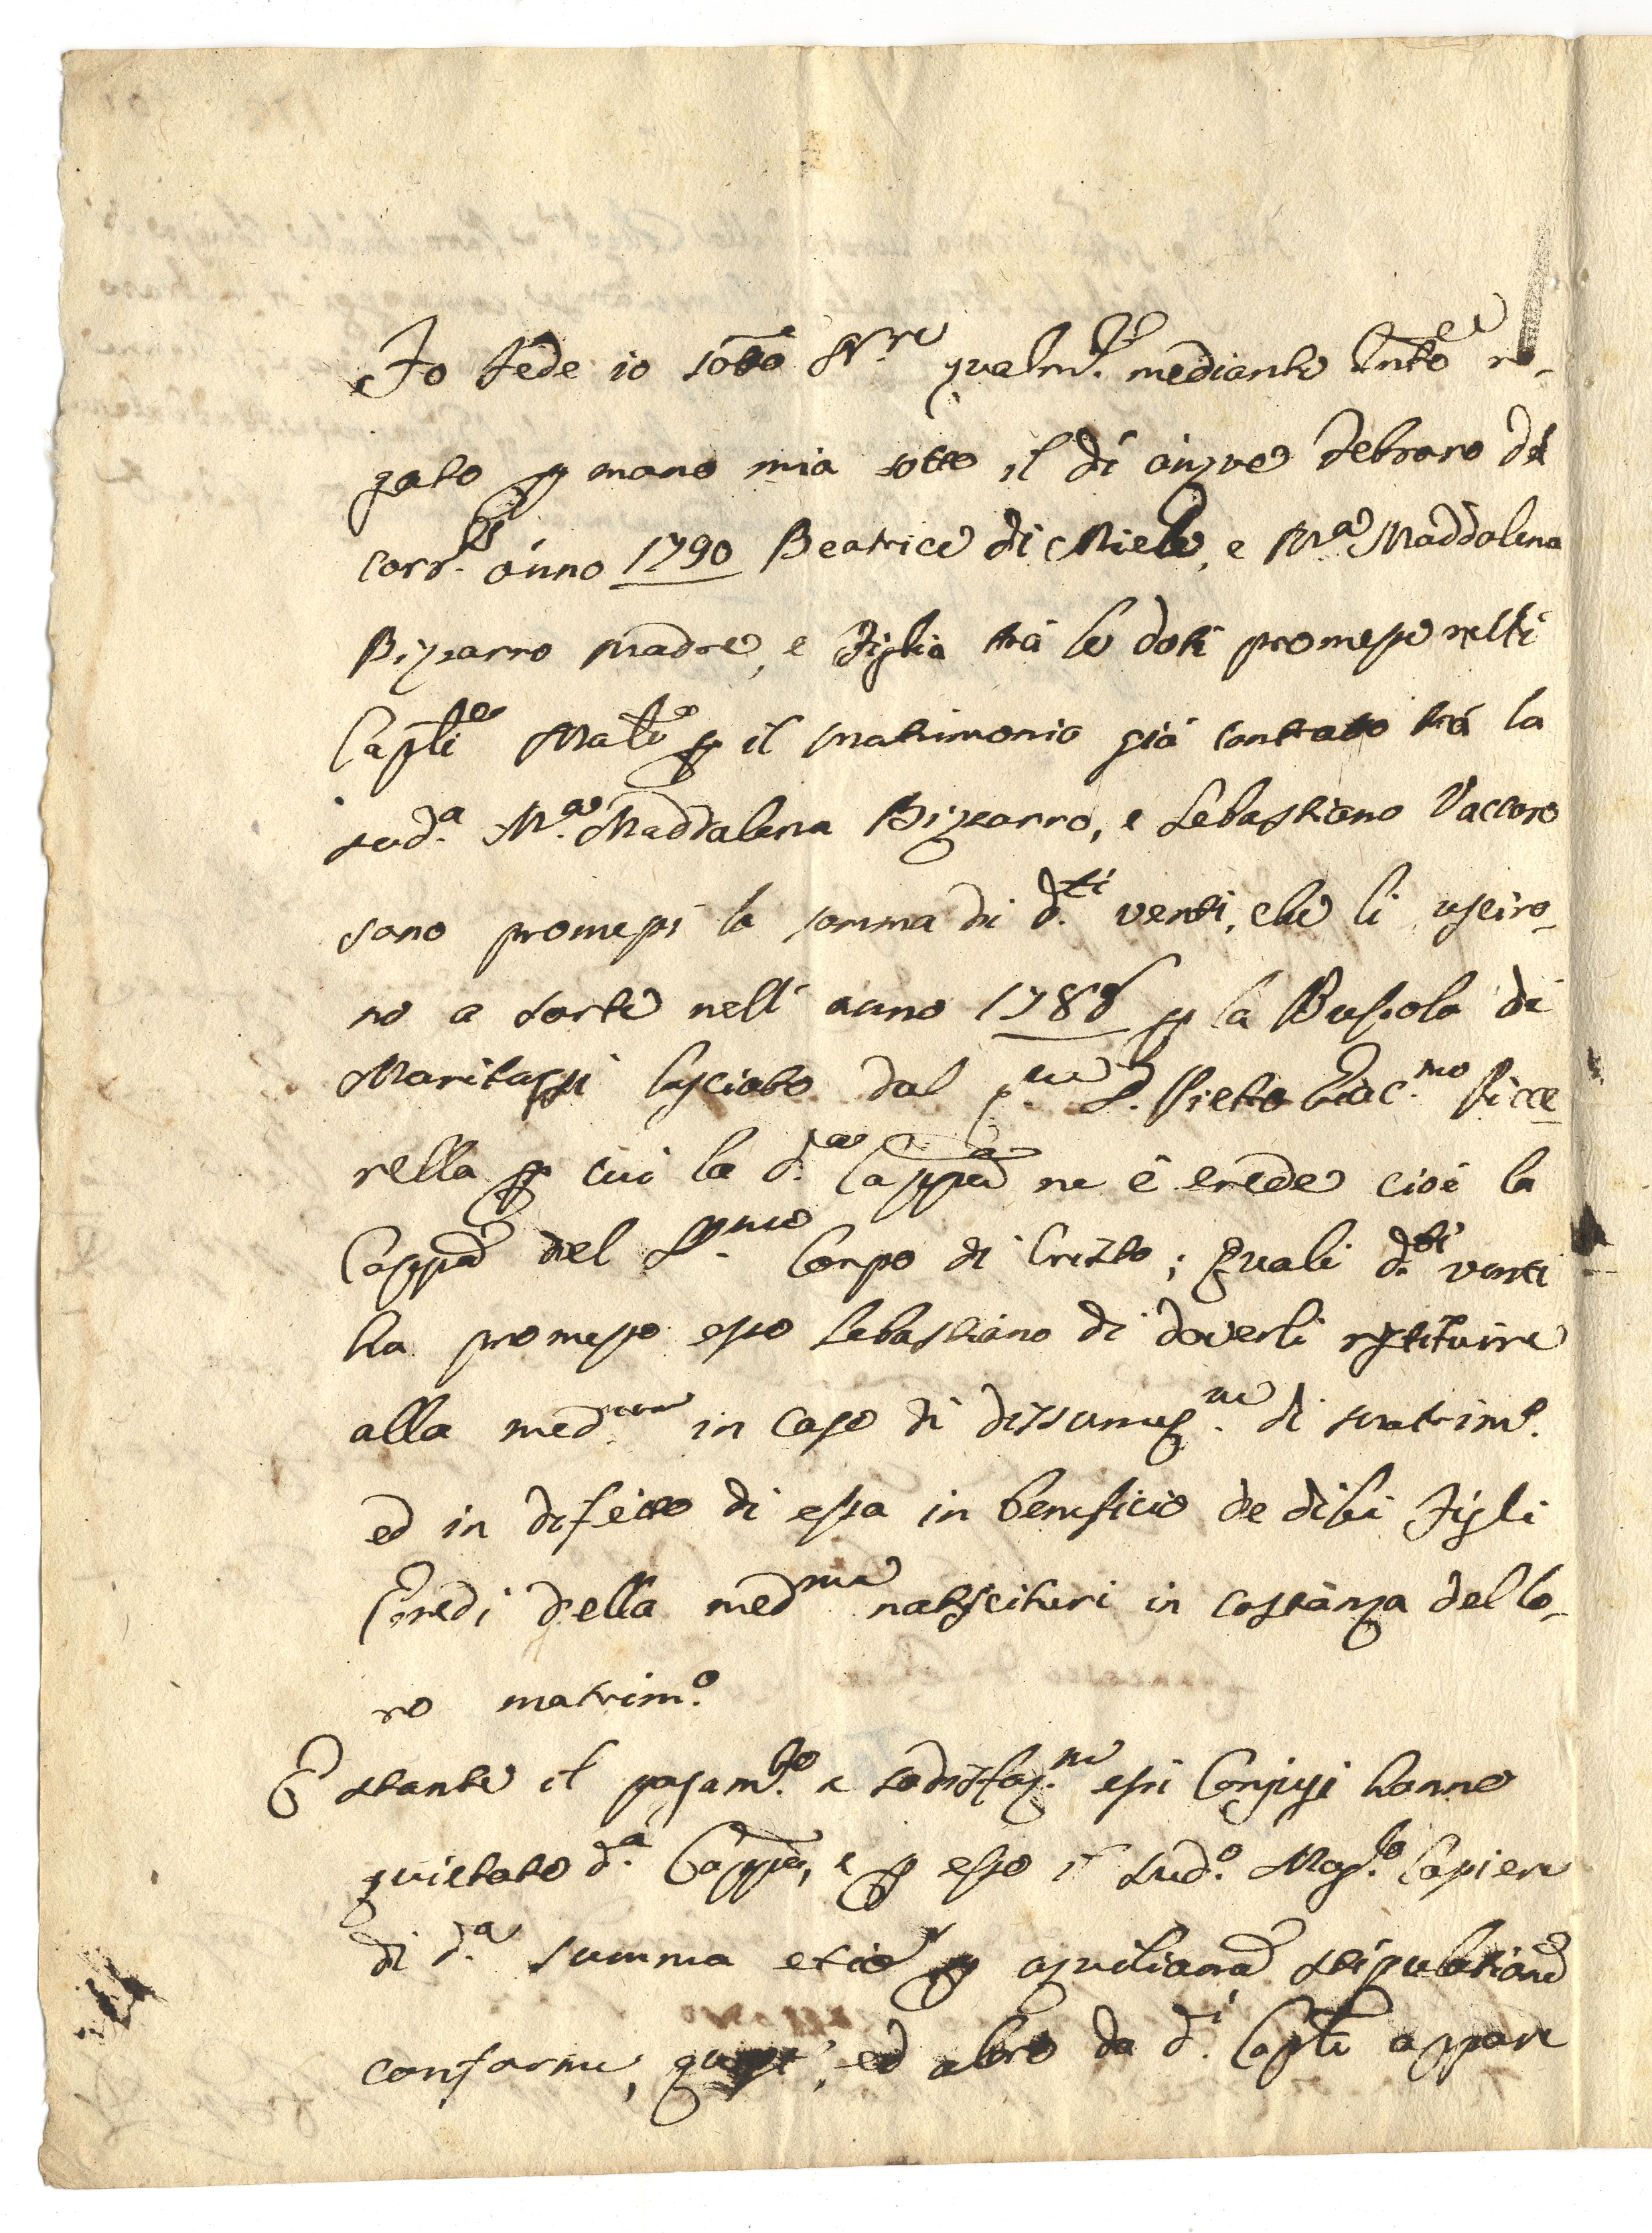 Fo fede io sotto Nre qualmte mediante Instro ro-
gato p mano mia sotto il dì cinque Febraro del
corrte anno 1790 Beatrice di Miele, e Ma Maddalena
Bizzarro Madre, e Figlia trà le doti promesse nelli
Capli Mali p il matrimonio già contratto trà la
sud.a M.a Maddalena Bizzarro, e Sebastiano Vaccaro
sono promessi la somma di d.ti venti, che li usciro-
no a sorte nell' anno 1788 p la Bussola di
Maritaggi lasciato dal D. Pietro Giac.mo Picce
rella p cui la d.a Cappa ne è erede cioè la
Cappa del SS.mo Corpo di Cristo; Quali d.ti venti
ha promesso esso Sebastiano di doverli restituire
alla med.ma in caso di dissoluz.ne di matrim.o
ed in difetto di essa in beneficio de di lei Figli
Eredi della med.ma nascituri in costanza del lo-
ro matrim.o
E stante il pagam.to e sodisfaz.ne essi Conjugi hanno
quietato d.a Cappa, e p esso il sud.o Mag.co Cassiere
di d.a summa etiã p aquilianã stipulationẽ
conforme, ed altro da d.i Capli appare